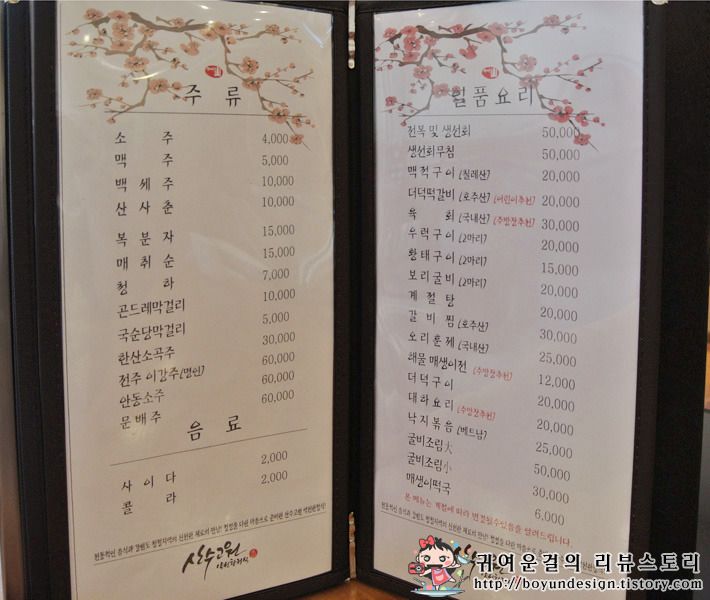 주 류
소 주 4,000
맥 주 5,000
백 세 주 10,000
산 사 춘 10,000
복 분 자 15,000
매 취 순 15,000
청 하 7,000
곤드레막걸리 10,000
국순당막걸리 5,000
한산소곡주 30,000
전주 이강주(명인) 60,000
안동소주 60,000
문 배 주 60,000
음 료
사 이 다 2,000
콜 라 2,000
산수고원
일품요리
전복 및 생선회 50,000
생선회무침 50,000
맥적구이 (칠레산) 20,000
더덕떡갈비 (호주산) (어린이추천) 20,000
육 회 (국내산) (주방장추천) 30,000
우럭구이 (2마리) 20,000
황태구이 (2마리) 15,000
보리굴비 (2마리) 20,000
계 절 탕 20,000
갈 비 찜 (호주산) 30,000
오리훈제 (국내산) 25,000
해물 매생이전 (주방장추천) 12,000
더덕구이 20,000
대하요리 (주방장추천) 20,000
낙지볶음 (베트남) 25,000
굴비조림大 50,000
굴비조림小 30,000
매생이떡국 6,000
본 메뉴는 계절에 따라 변경될수있음을 알려드립니다.
귀여운걸의 리뷰스토리
http://boyundesign.tistory.com